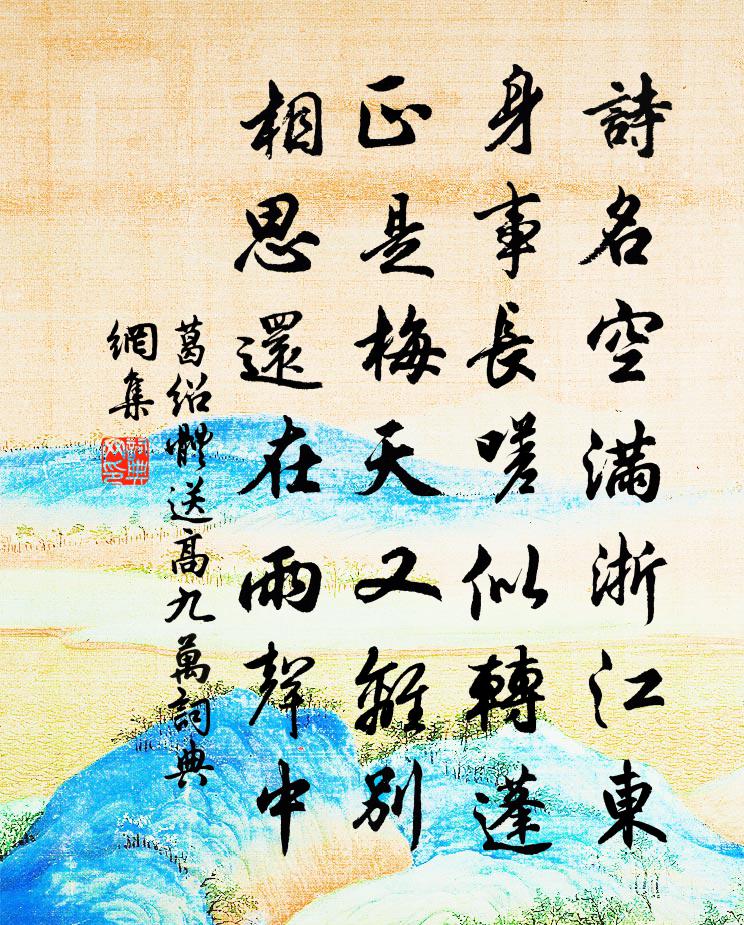 詩名空滿浙江東
身事長嗟似轉蓬
正是梅天又離別
相思還在雨聲中
葛紹體送高九萬詞典
網集